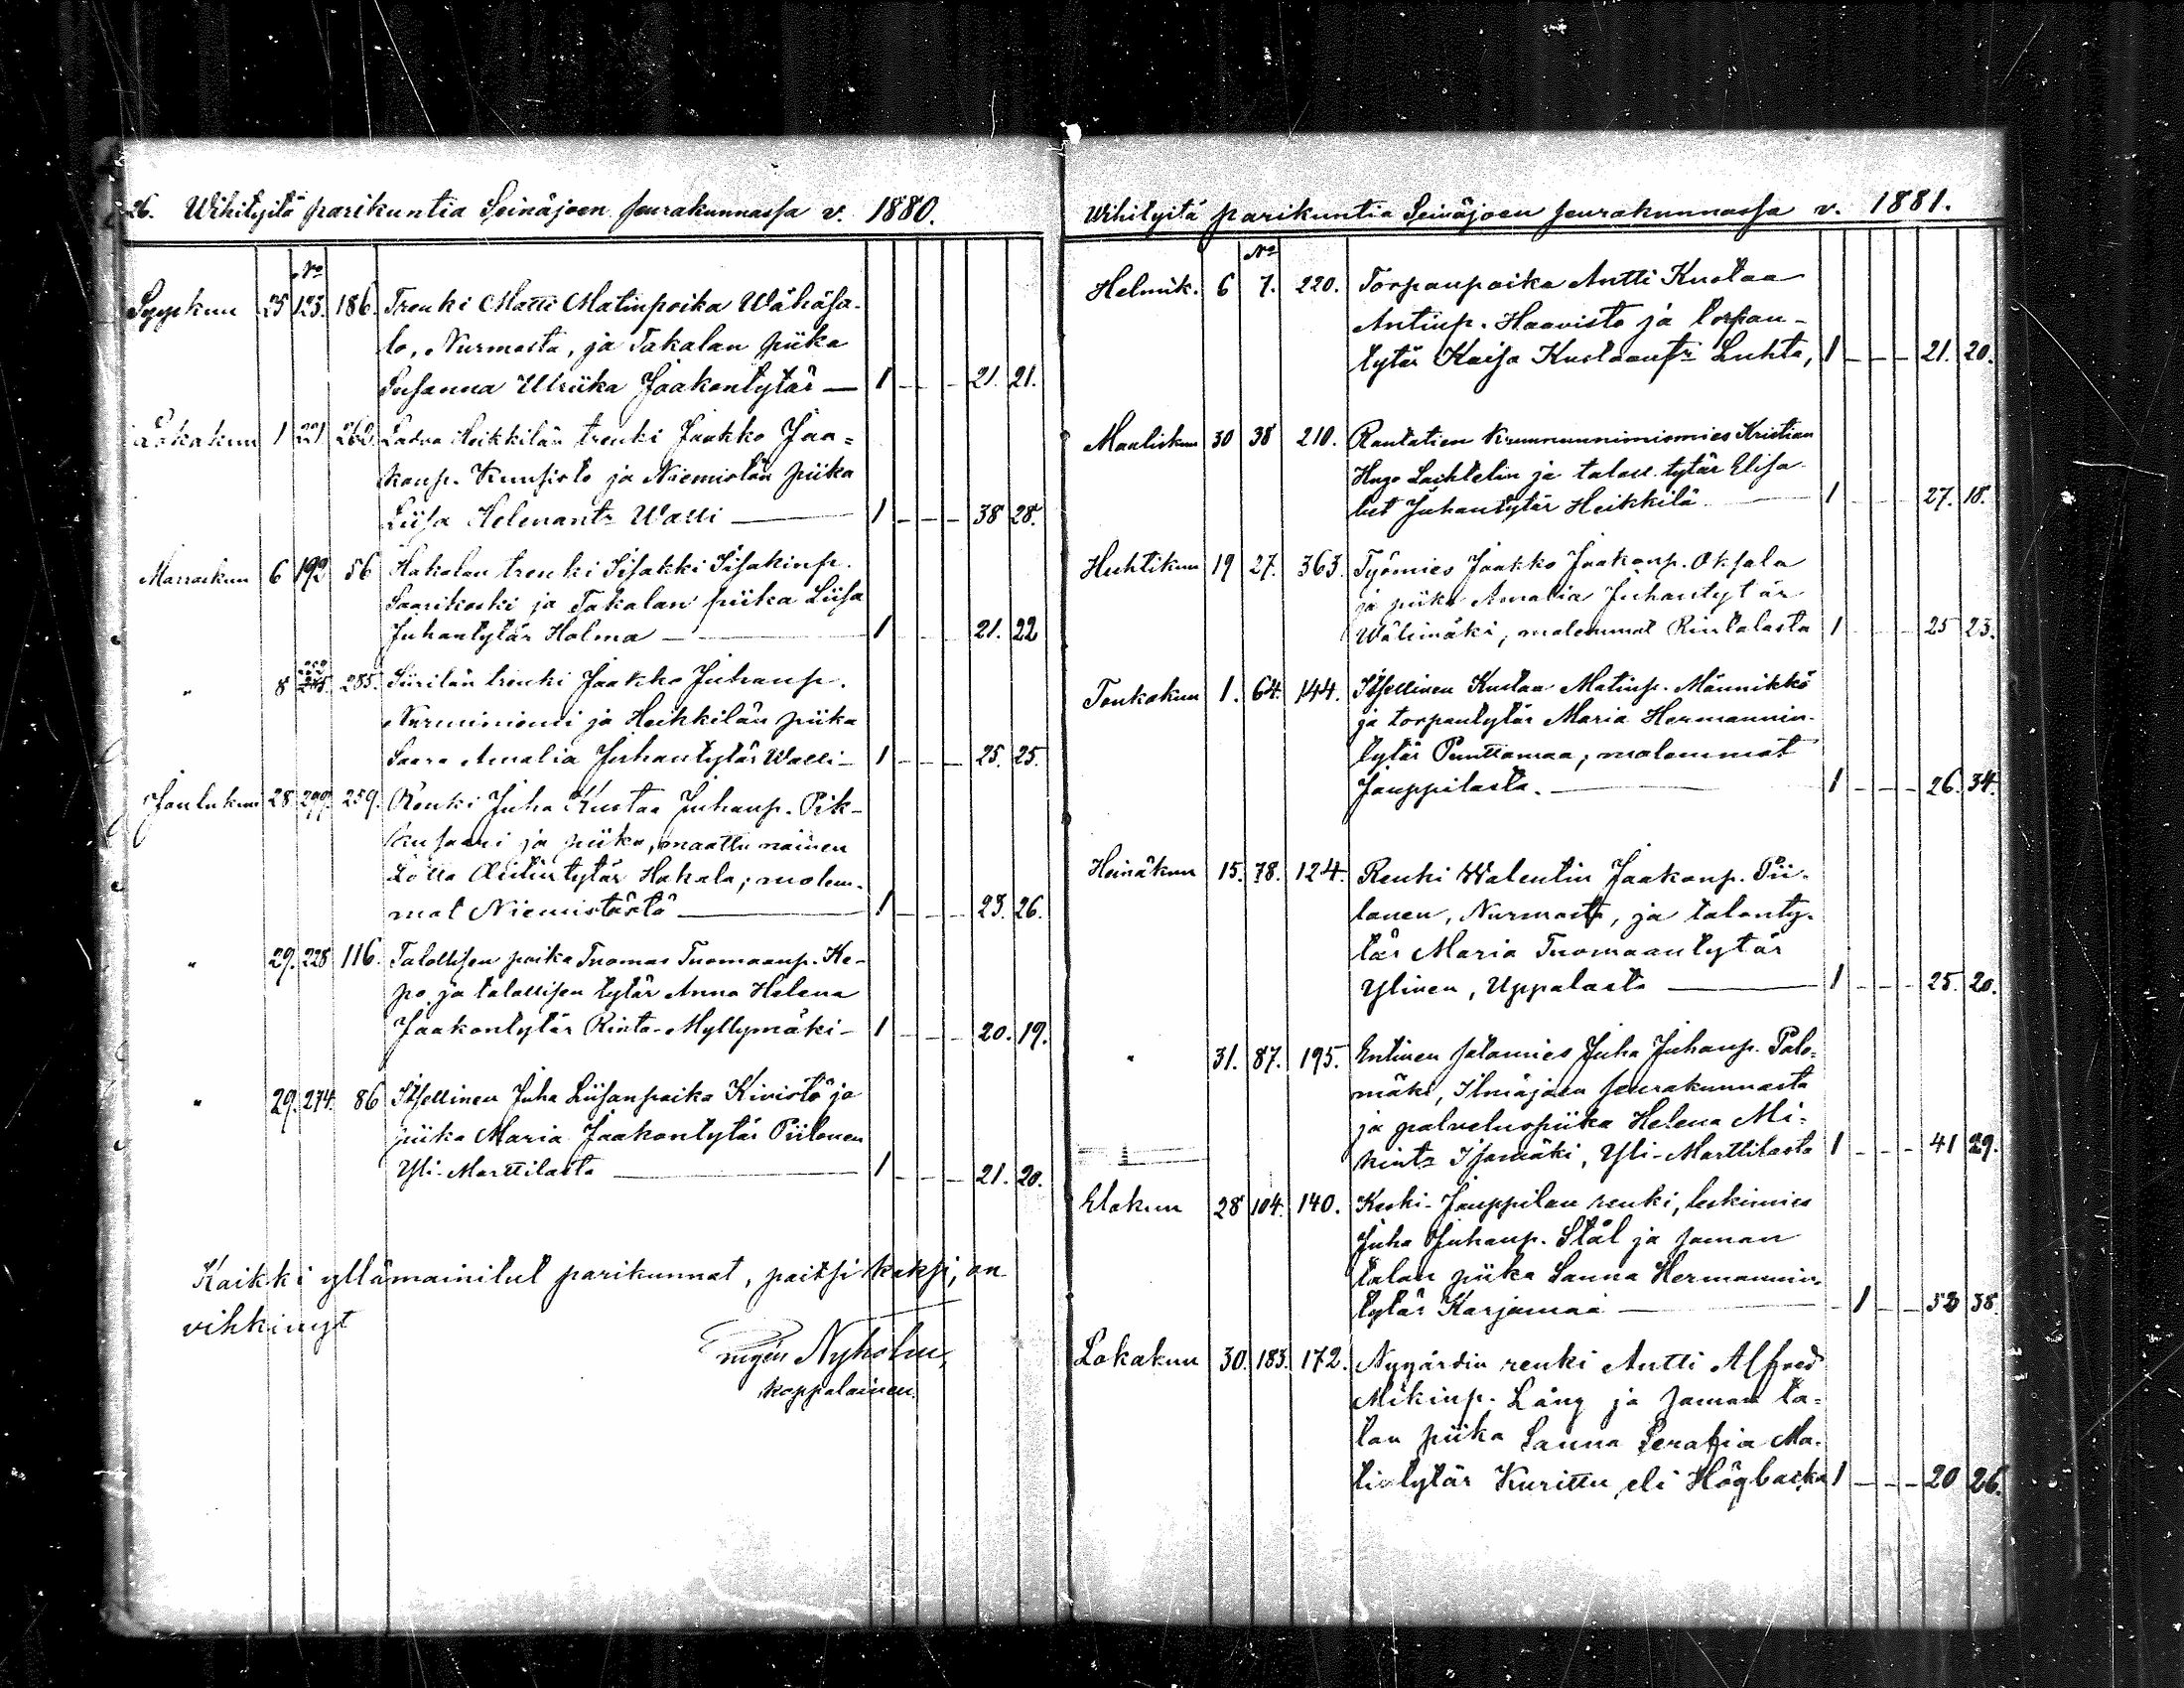 26. Wihityitä parikuntia Seinäjoen seurakunnassa v. 1880.
No
Syyskun 25 123. 186. Trenki Matti Matinpoika Wähäsa-
lo, Nurmosta, ja Takalan piika
Susanna Ulriika Jaakontytär — 1 - - - 21. 21.
Lokakun 1 221 262. Ladva Heikkilän trenki Jaakko Jaa-
konp. Kuusisto ja Niemistön piika
Liisa Helenantr Walli — 1 - - - 38 28.
Marraskun 6 192 56 Hakalan trenki Iisakki Iisakinp.
Saarikoski ja Takalan piika Liisa
Juhantytär Holma — 1 - - - 21. 22
" 8 285. Siirilän trenki Jaakko Juhanp.
Nurminiemi ja Heikkilän piika
Saara Amalia Juhantytär Walli - 1 - - - 25. 25.
Joulukun 28 299. 259. Renki Juha Kustaa Juhanp. Pik-
kusaari ja piika, maattu nainen
Lotta Hakala; molem-
mat Niemistöstä — 1 - - - 23. 26.
" 29. 228 116. Talollisen poika Tuomas Tuomaanp. Ke-
po ja talollisen tytär Anna Helena
Jaakontytär Rinta-Myllymäki - 1 - - - 20. 19.
" 29. 274. 86 Itsellinen Juha Liisanpoika Kivistö ja
piika Maria Jaakontytär Piilonen
Yli-Marttilasta — 1 - - - 21. 20.
Kaikki yllämainitut parikunnat, paitsi kaksi, on
vihkinyt
Nyholm,
kappalainen.
Wihityitä parikuntia Seinäjoen seurakunnassa v. 1881.
No
Helmik. 6 7. 220. Torpanpoika Antti Kustaa
Antinp. Haavisto ja torpan-
tytär Kaisa Kustaantr Luhta, 1 - - - 21. 20.
Maaliskun 30 38 210. Rautatien kruununnimismies Kristian
Hugo Lachtelin ja talall. tytär Elisa-
bet Juhantytär Heikkilä. — 1 - - - 27. 18.
Huhtikun 19 27. 363. Työmies Jaakko Jaakonp. Oksala
ja piika Amalia Juhantytär
Wälimäki, molemmat Rintalasta 1 - - - 25 23.
Toukokun 1. 64. 144. Itsellinen Kustaa Matinp. Männikkö
ja torpantytär Maria Hermannin-
tytär Punttamaa, molemmat
Jouppilasta. — 1 - - - 26. 34.
Heinäkun 15. 78. 124. Renki Walentin Jaakonp. Pii-
lonen, Nurmosta, ja talonty-
tär Maria Tuomaantytär
Ylinen, Uppalasta — 1 - - - 25. 20.
" 31. 87. 195. Entinen sotamies Juha Juhanp. Palo-
mäki, Ilmajoen seurakunnasta
ja palveluspiika Helena Mi-
kintr Isomäki, Yli-Marttilasta 1 - - - 41 29.
Elokun 28 104. 140. Keski-Jouppilan renki, leskimies
Juha Juhanp. Stål ja saman
talon piika Sanna Hermannin-
tytär Karjamaa — - 1 - - 53 38.
Lokakun 30. 183. 172. Nygårdin renki Antti Alfred
Mikinp. Lång ja saman ta-
lon piika Sanna Serafia Ma-
tintytär Kurittu, eli Högbacka 1 - - - 20 26.